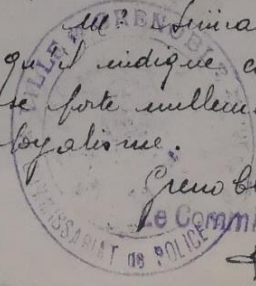 qu'il indique
se porte nullem
loyalisme.
Grenob
Le Commi
VILLE DE GRENOBLE
COMMISSARIAT DE POLICE